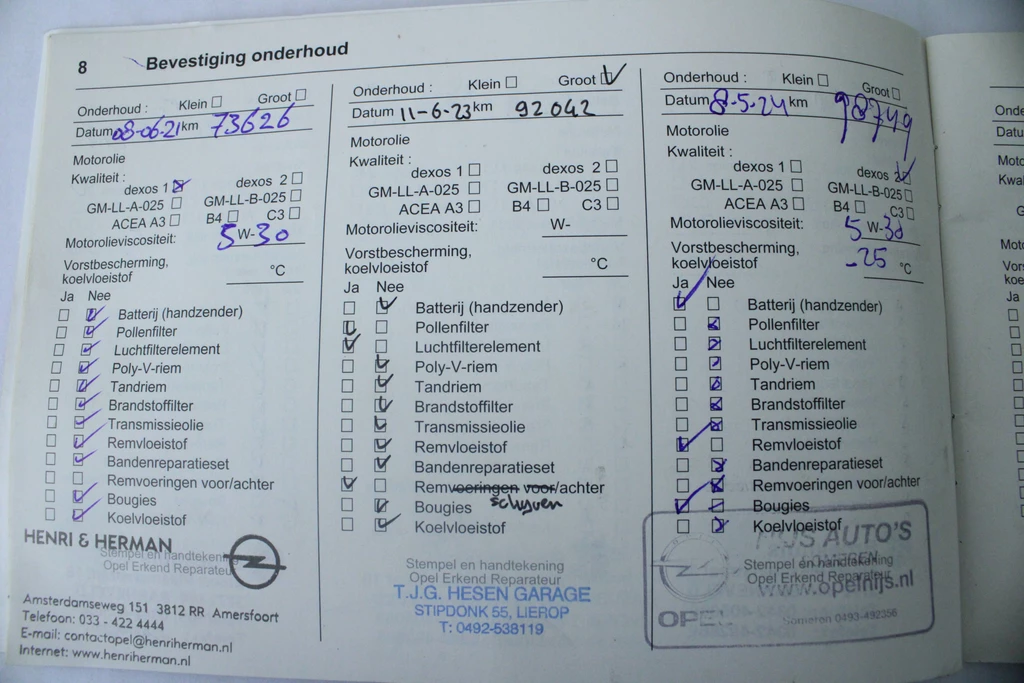 8 Bevestiging onderhoud
Onderhoud : Klein ☐ Groot ☐
Datum 08-06-21 km 73626
Motorolie
Kwaliteit :
dexos 1 ☑ dexos 2 ☐
GM-LL-A-025 ☐ GM-LL-B-025 ☐
ACEA A3 ☐ B4 ☐ C3 ☐
Motorolieviscositeit: 5 W-30
Vorstbescherming,
koelvloeistof °C
Ja Nee
☐ ☑ Batterij (handzender)
☐ ☑ Pollenfilter
☐ ☑ Luchtfilterelement
☐ ☑ Poly-V-riem
☐ ☑ Tandriem
☐ ☑ Brandstoffilter
☐ ☑ Transmissieolie
☐ ☑ Remvloeistof
☐ ☑ Bandenreparatieset
☐ ☐ Remvoeringen voor/achter
☐ ☑ Bougies
☐ ☑ Koelvloeistof
HENRI & HERMAN
Stempel en handtekening
Opel Erkend Reparateur
Amsterdamseweg 151 3812 RR Amersfoort
Telefoon: 033 - 422 4444
E-mail: contactopel@henriherman.nl
Internet: www.henriherman.nl
Onderhoud : Klein ☐ Groot ☑
Datum 11-6-23 km 92042
Motorolie
Kwaliteit :
dexos 1 ☐ dexos 2 ☐
GM-LL-A-025 ☐ GM-LL-B-025 ☐
ACEA A3 ☐ B4 ☐ C3 ☐
Motorolieviscositeit: W-
Vorstbescherming,
koelvloeistof °C
Ja Nee
☐ ☑ Batterij (handzender)
☑ ☐ Pollenfilter
☑ ☐ Luchtfilterelement
☐ ☑ Poly-V-riem
☐ ☑ Tandriem
☐ ☑ Brandstoffilter
☐ ☑ Transmissieolie
☐ ☑ Remvloeistof
☐ ☑ Bandenreparatieset
☑ ☐ Remvoeringen voor/achter
schyven
☐ ☑ Bougies
☐ ☑ Koelvloeistof
Stempel en handtekening
Opel Erkend Reparateur
T.J.G. HESEN GARAGE
STIPDONK 55, LIEROP
T: 0492-538119
Onderhoud : Klein ☐ Groot ☐
Datum 8-5-24 km 98749
Motorolie
Kwaliteit :
dexos 1 ☐ dexos 2 ☑
GM-LL-A-025 ☐ GM-LL-B-025 ☐
ACEA A3 ☐ B4 ☐ C3 ☐
Motorolieviscositeit: 5 W-30
Vorstbescherming,
koelvloeistof -25 °C
Ja Nee
☑ ☐ Batterij (handzender)
☐ ☒ Pollenfilter
☐ ☒ Luchtfilterelement
☐ ☒ Poly-V-riem
☐ ☒ Tandriem
☐ ☒ Brandstoffilter
☐ ☒ Transmissieolie
☑ ☐ Remvloeistof
☐ ☒ Bandenreparatieset
☐ ☒ Remvoeringen voor/achter
☑ ☐ Bougies
☐ ☒ Koelvloeistof
AUTO'S
Stempel en handtekening
Opel Erkend Reparateur
www.opelnijs.nl
OPEL
Someren 0493-492356
Datu
Ja